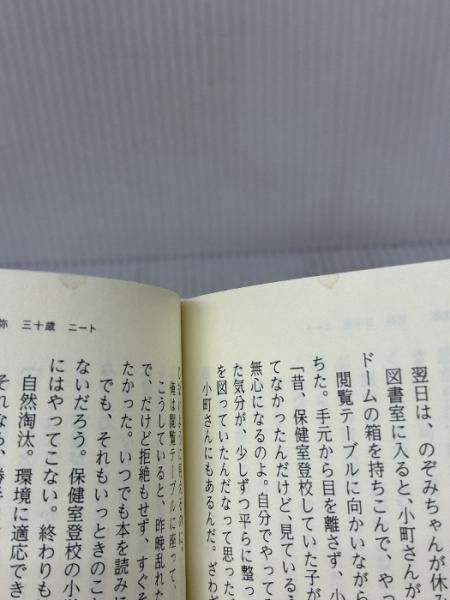 翌日は、のぞみちゃんが休み
図書室に入ると、小町さんが
ドームの箱を持ちこんで、やっ
閲覧テーブルに向かいながら
ちた。手元から目を離さず、小
「昔、保健室登校していた子が
てなかったんだけど、見ているこ
無心になるのよ。自分でやって
た気分が、少しずつ平らに整っ
を図っていたんだなって思った
小町さんにもあるんだ。ざわざ
弥 三十歳 ニート
俺は閲覧テーブルに座って、
こうしていると、昨晩乱れた
で、だけど拒絶もせず、すぐそ
たかった。いつでも本を読みに
でも、それもいっときのこ
ないだろう。保健室登校の小
にはやってこない。終わりも
自然淘汰。環境に適応でき
それなら、勝手